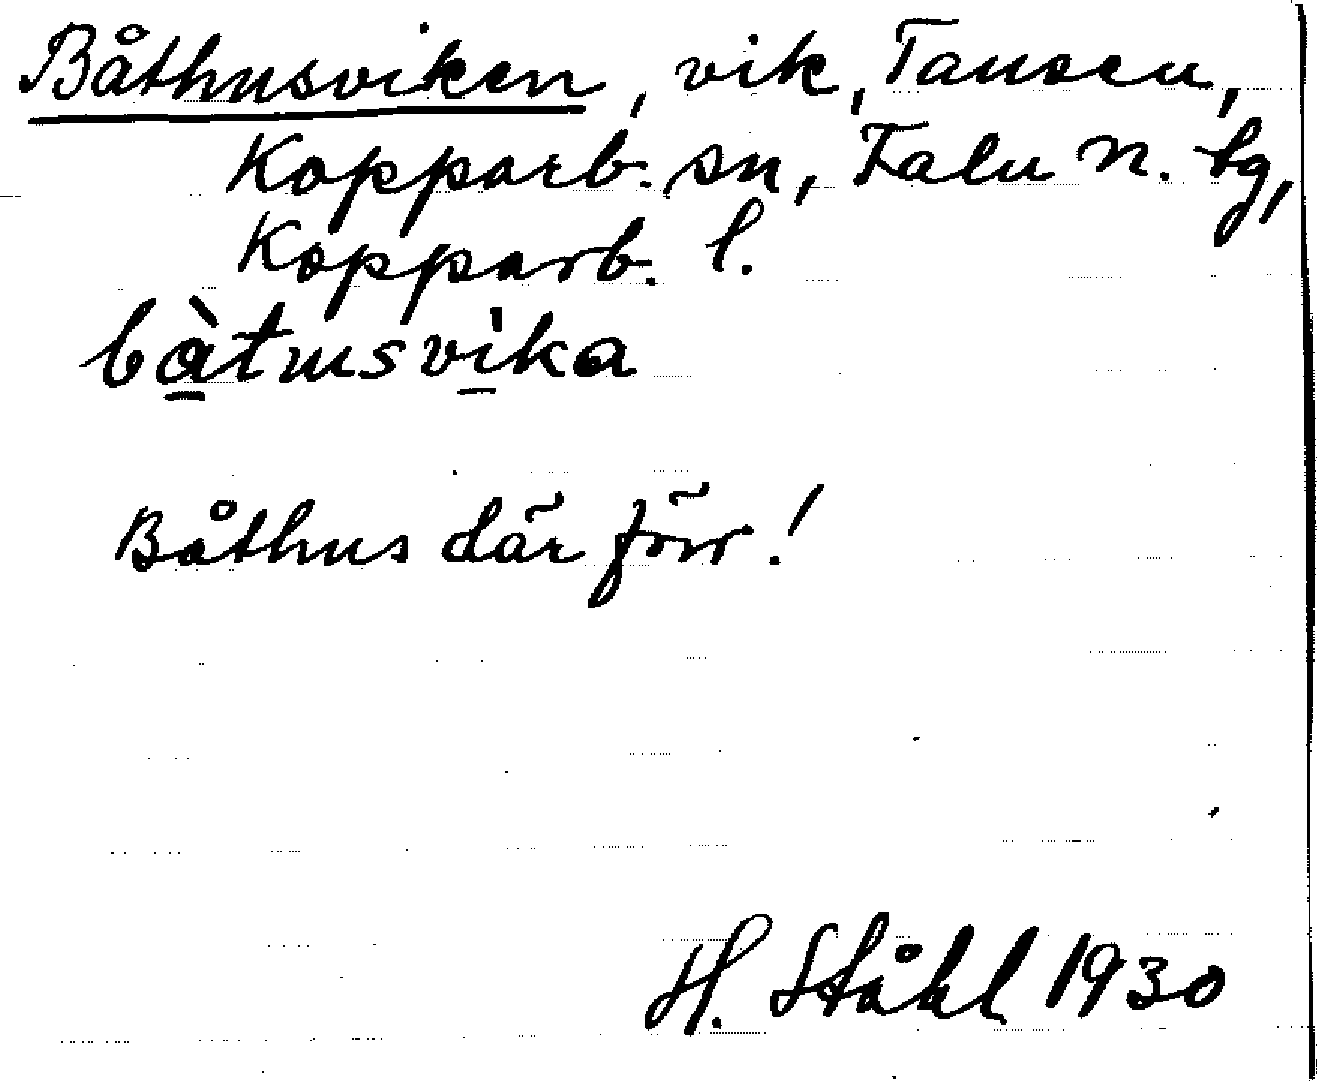 Båthusviken, vik, Tansen,
Kopparb. sn, Falu n. tg,
Kopparb. l.
bàtusvika
Båthus där förr!
H. Ståhl 1930